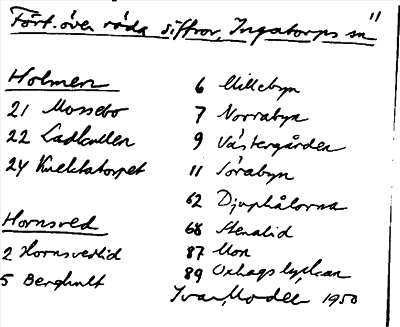 Fört. över röda siffror, Ingatorps sn "
Holmen
21 Mossebo
22 Ladkullen
24 Knektatorpet
Hornsved
2 Hornsvedlid
5 Berghult
6 Millebyn
7 Norrabyn
9 Västergården
11 Sörabyn
62 Djuphålorna
68 Stenalid
87 Mon
89 Oxhagslyckan
Ivar Modéer 1950